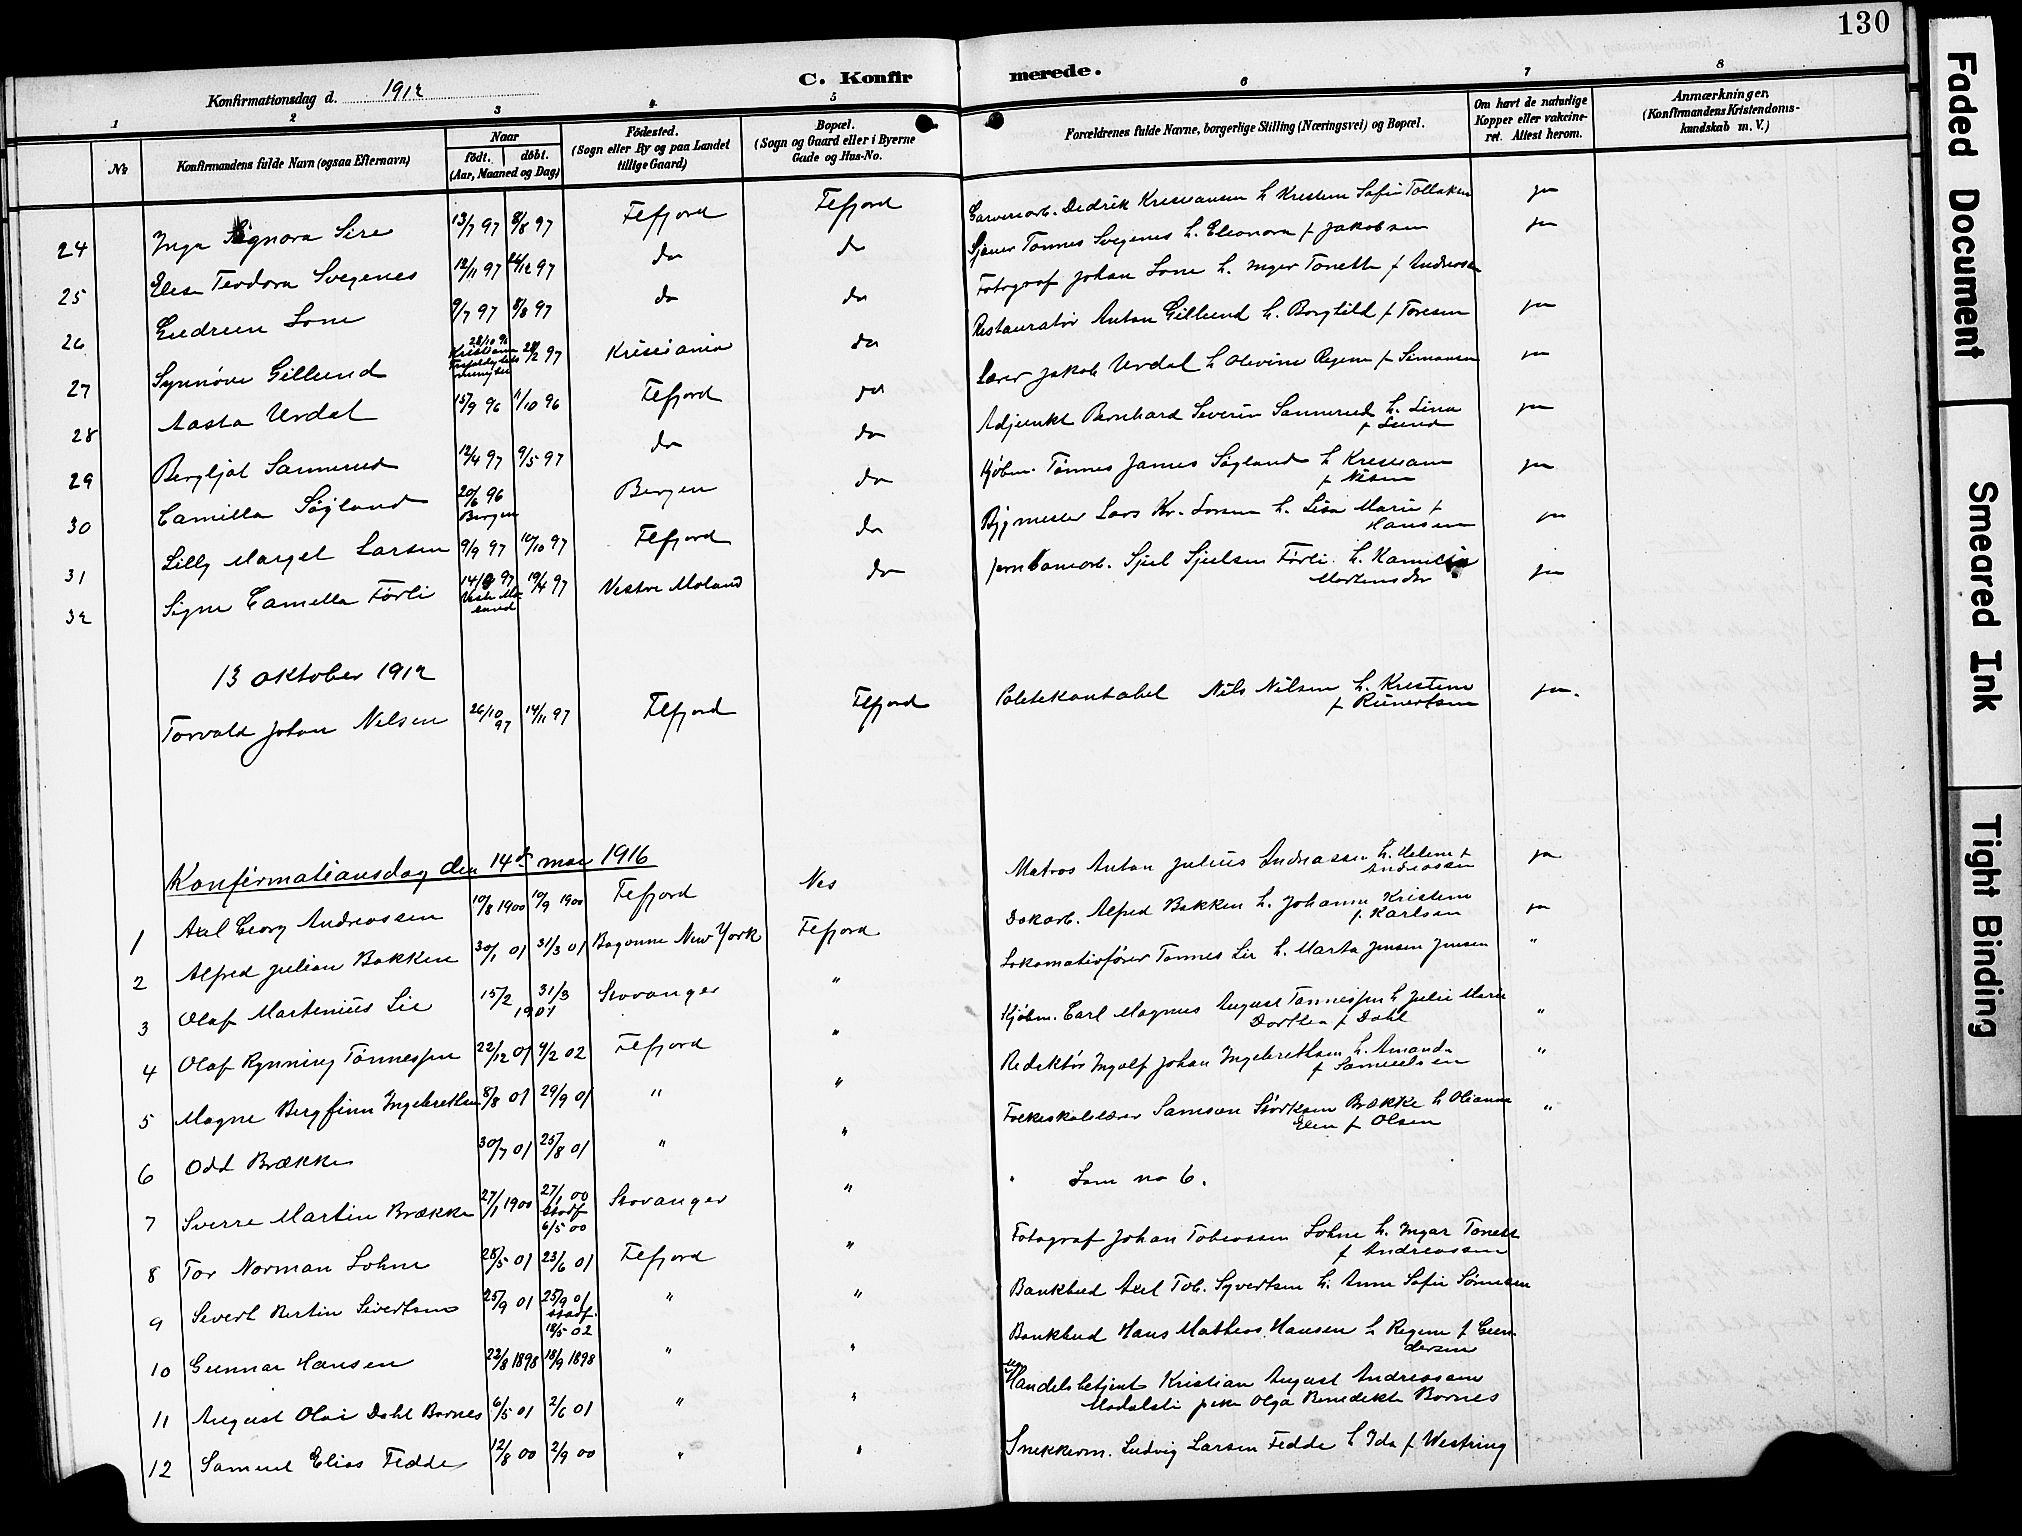 130
Konfirmationsdag d. 1912
C. Konfirmerede.
1 2 3 4 5 6 7 8
No
Konfirmandens fulde Navn (ogsaa Efternavn)
Naar
født. døbt.
(Aar, Maaned og Dag)
Fødested.
(Sogn eller By og paa Landet
tillige Gaard)
Bopæl.
(Sogn og Gaard eller i Byerne
Gade og Hus-No.
Forældrenes fulde Navne, borgerlige Stilling (Næringsvei) og Bopæl.
Om havt de naturlige
Kopper eller vakcine-
ret. Attest herom.
Anmærkninger,
(Konfirmandens Kristendoms-
kundskab m. V.)
24 Inga Signora Sire 13/7 97 8/8 97 Flefjord Flefjord Garveriarb. Dedrik Kristiansen h. Kristine Sofie Tollaksen ja
25 Elise Teodora Svegenes 12/11 97 26/12 97 do do Sjauer Tønnes Svegenes h. Eleonora f Jakobsen ja
26 Gudrun Lone 9/7 97 8/8 97 do do Fotograf Johan Lone h. Inger Tonette f Andreasen
27 Synnøve Gillund 28/10 96 Kristiania 28/2 97 Kristiania do Restauratør Anton Gillund h. Borghild f Toresen ja
28 Aasta Urdal 15/9 96 1/10 96 Flefjord do Lærer Jakob Urdal h Olevine Regine f Simonsen ja
29 Bergljot Sannerud 12/4 97 9/5 97 do do Adjunkt Bernhard Severin Sannerud h. Lina f Lund ja
30 Camilla Søyland 20/6 96 Bergen Bergen do Kjøbm. Tønnes James Søyland h Kristiane f Nilsen ja
31 Lilly Margit Larsen 9/9 97 10/10 97 Flefjord do Bygmester Lars Kr. Larsen h. Lisa Marie f Hansen ja
32 Signe Camilla Førli 19/4 97 Vestre Moland do Sjul Sjulsen Førli h. Kamilla Mortensdtr ja
13 oktober 1912
Torvald Johan Nilsen 26/10 97 14/11 97 Flefjord Flefjord Politikonstabel Nils Nilsen h. Kristine f Reinertsen ja.
Konfirmationsdag den 14de mai 1916
1 Axel Georg Andreassen 10/8 1900 10/9 1900 Flefjord Nes Matros Anton Julius Andreassen h. Helene f Andreassen ja
2 Alfred Julian Bakken 30/1 01 31/3 01 Bayonne New York Flefjord Dokarb. Alfred Bakken h. Johanne Kristine f. Karlsen ja
3 Olaf Martinius Lie 15/2 31/3 1901 Stavanger " Lokomotivfører Tønnes Lie h. Marta Jensen Jensen "
4 Olaf Rynning Tønnessen 22/12 01 9/2 02 Flefjord " Kjøbm. Carl Magnus August Tønnessen h Julie Marie Dorthea f Dahl "
5 Magne Bergfinn Ingebrethsen 8/8 01 29/9 01 " " Redaktør Ingolf Johan Ingebrethsen h. Amanda f Samuelsen "
6 Odd Brække 30/7 01 25/8 01 " " Folkeskolelærer Samson Størksen Brække h Olianna Elen f Olsen "
7 Sverre Martin Brække 27/1 1900 27/1 00 Stadf 6/5 00 Stavanger " " Som no 6.
8 Tor Norman Lohne 28/5 01 23/6 01 Flefjord " Fotograf Johan Tobiassen Lohne h. Ingar Tonett f Andreassen
9 Sivert Bertin Sivertsen 25/9 01 25/9 01 stadf. 18/5 02 " " Bankbud Axel Tob. Syvertsen h. Anne Sofie Sørensen
10 Gunnar Hansen 22/8 1898 18/9 1898 " " Bankbud Hans Mathias Hansen h Regine f Gundersen
11 August Olai Dahl Barnes 6/5 01 2/6 01 " " Handelsbetjent Kristian August Andreassen pike Olga Benedikte Barnes
12 Samuel Elias Fedde 12/8 00 2/9 00 " " Snekkerm. Ludvig Larsen Fedde h Ida f Westring
Faded Document
Smeared Ink
Tight Binding